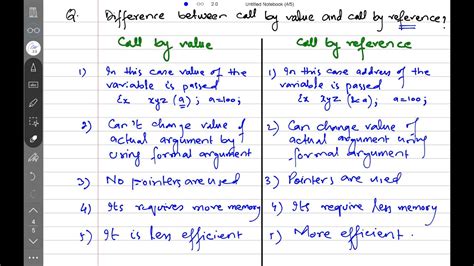 Untitled Notebook (A5)
Q. Difference between call by value and call by reference?
Call by value
1) In this case value of the
variable is passed
Ex xyz (a); a=100;
2) Can't change value of
actual argument by
using formal argument
3) No pointers are used
4) Its requires more memory
5) It is less efficient
Call by reference
1) In this case address of the
variable is passed
Ex xyz (&a); a=100;
2) Can change value of
actual argument using
formal argument
3) Pointers are used
4) Its require less memory
5) More efficient.
4
5